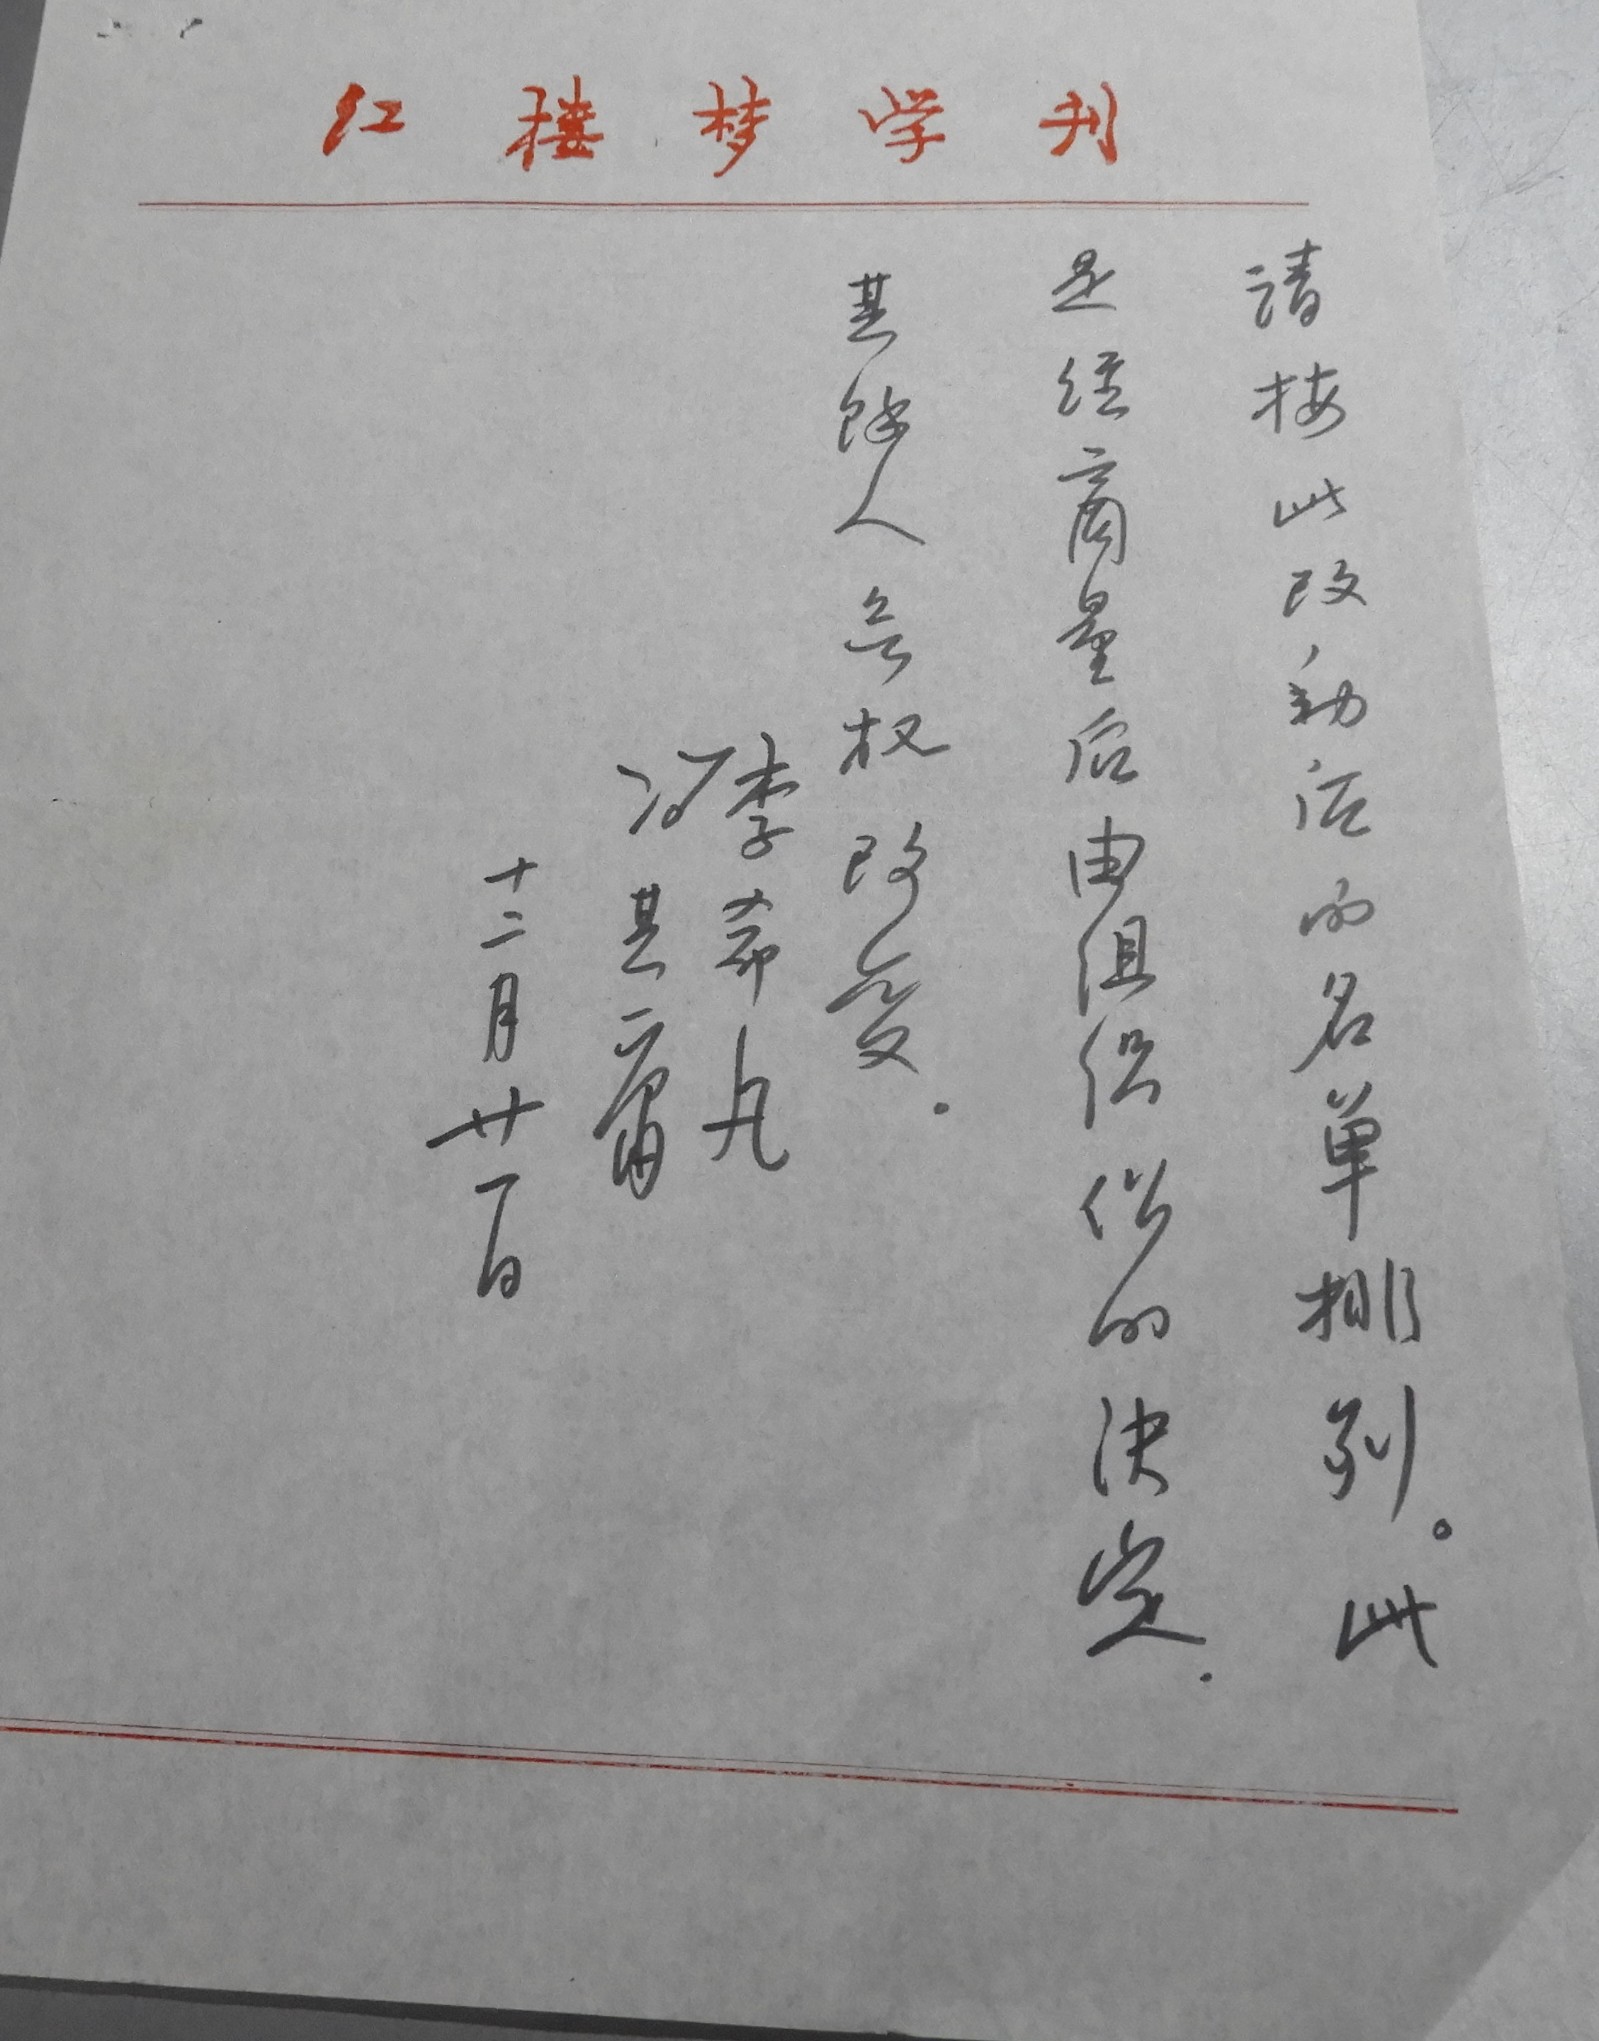 红楼梦学刊
請按此改动后的名单排列。此
是经商量后由组织作的决定.
其馀人无权改变.
李希凡
冯其庸
十二月廿一日